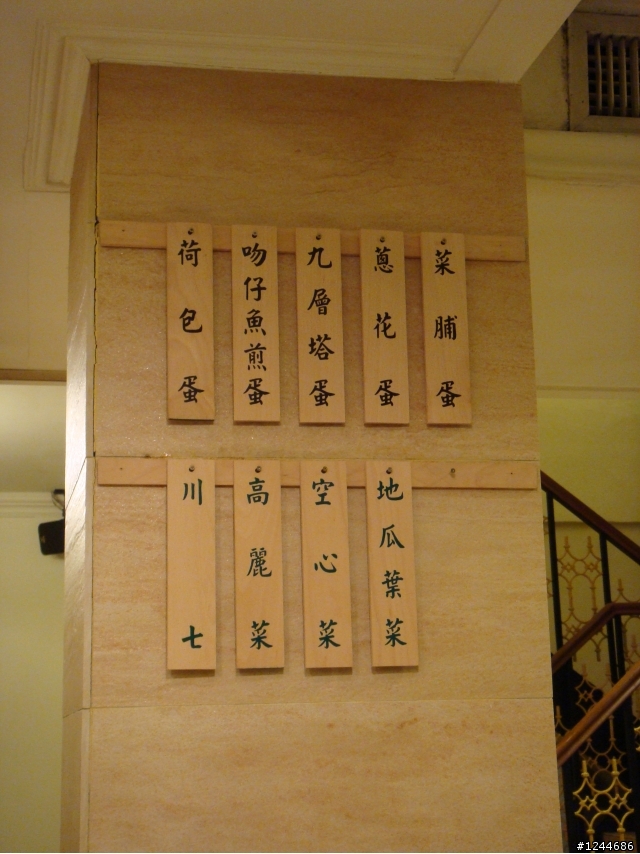 菜脯蛋
蔥花蛋
九層塔蛋
吻仔魚煎蛋
荷包蛋
地瓜葉菜
空心菜
高麗菜
川七
#1244686